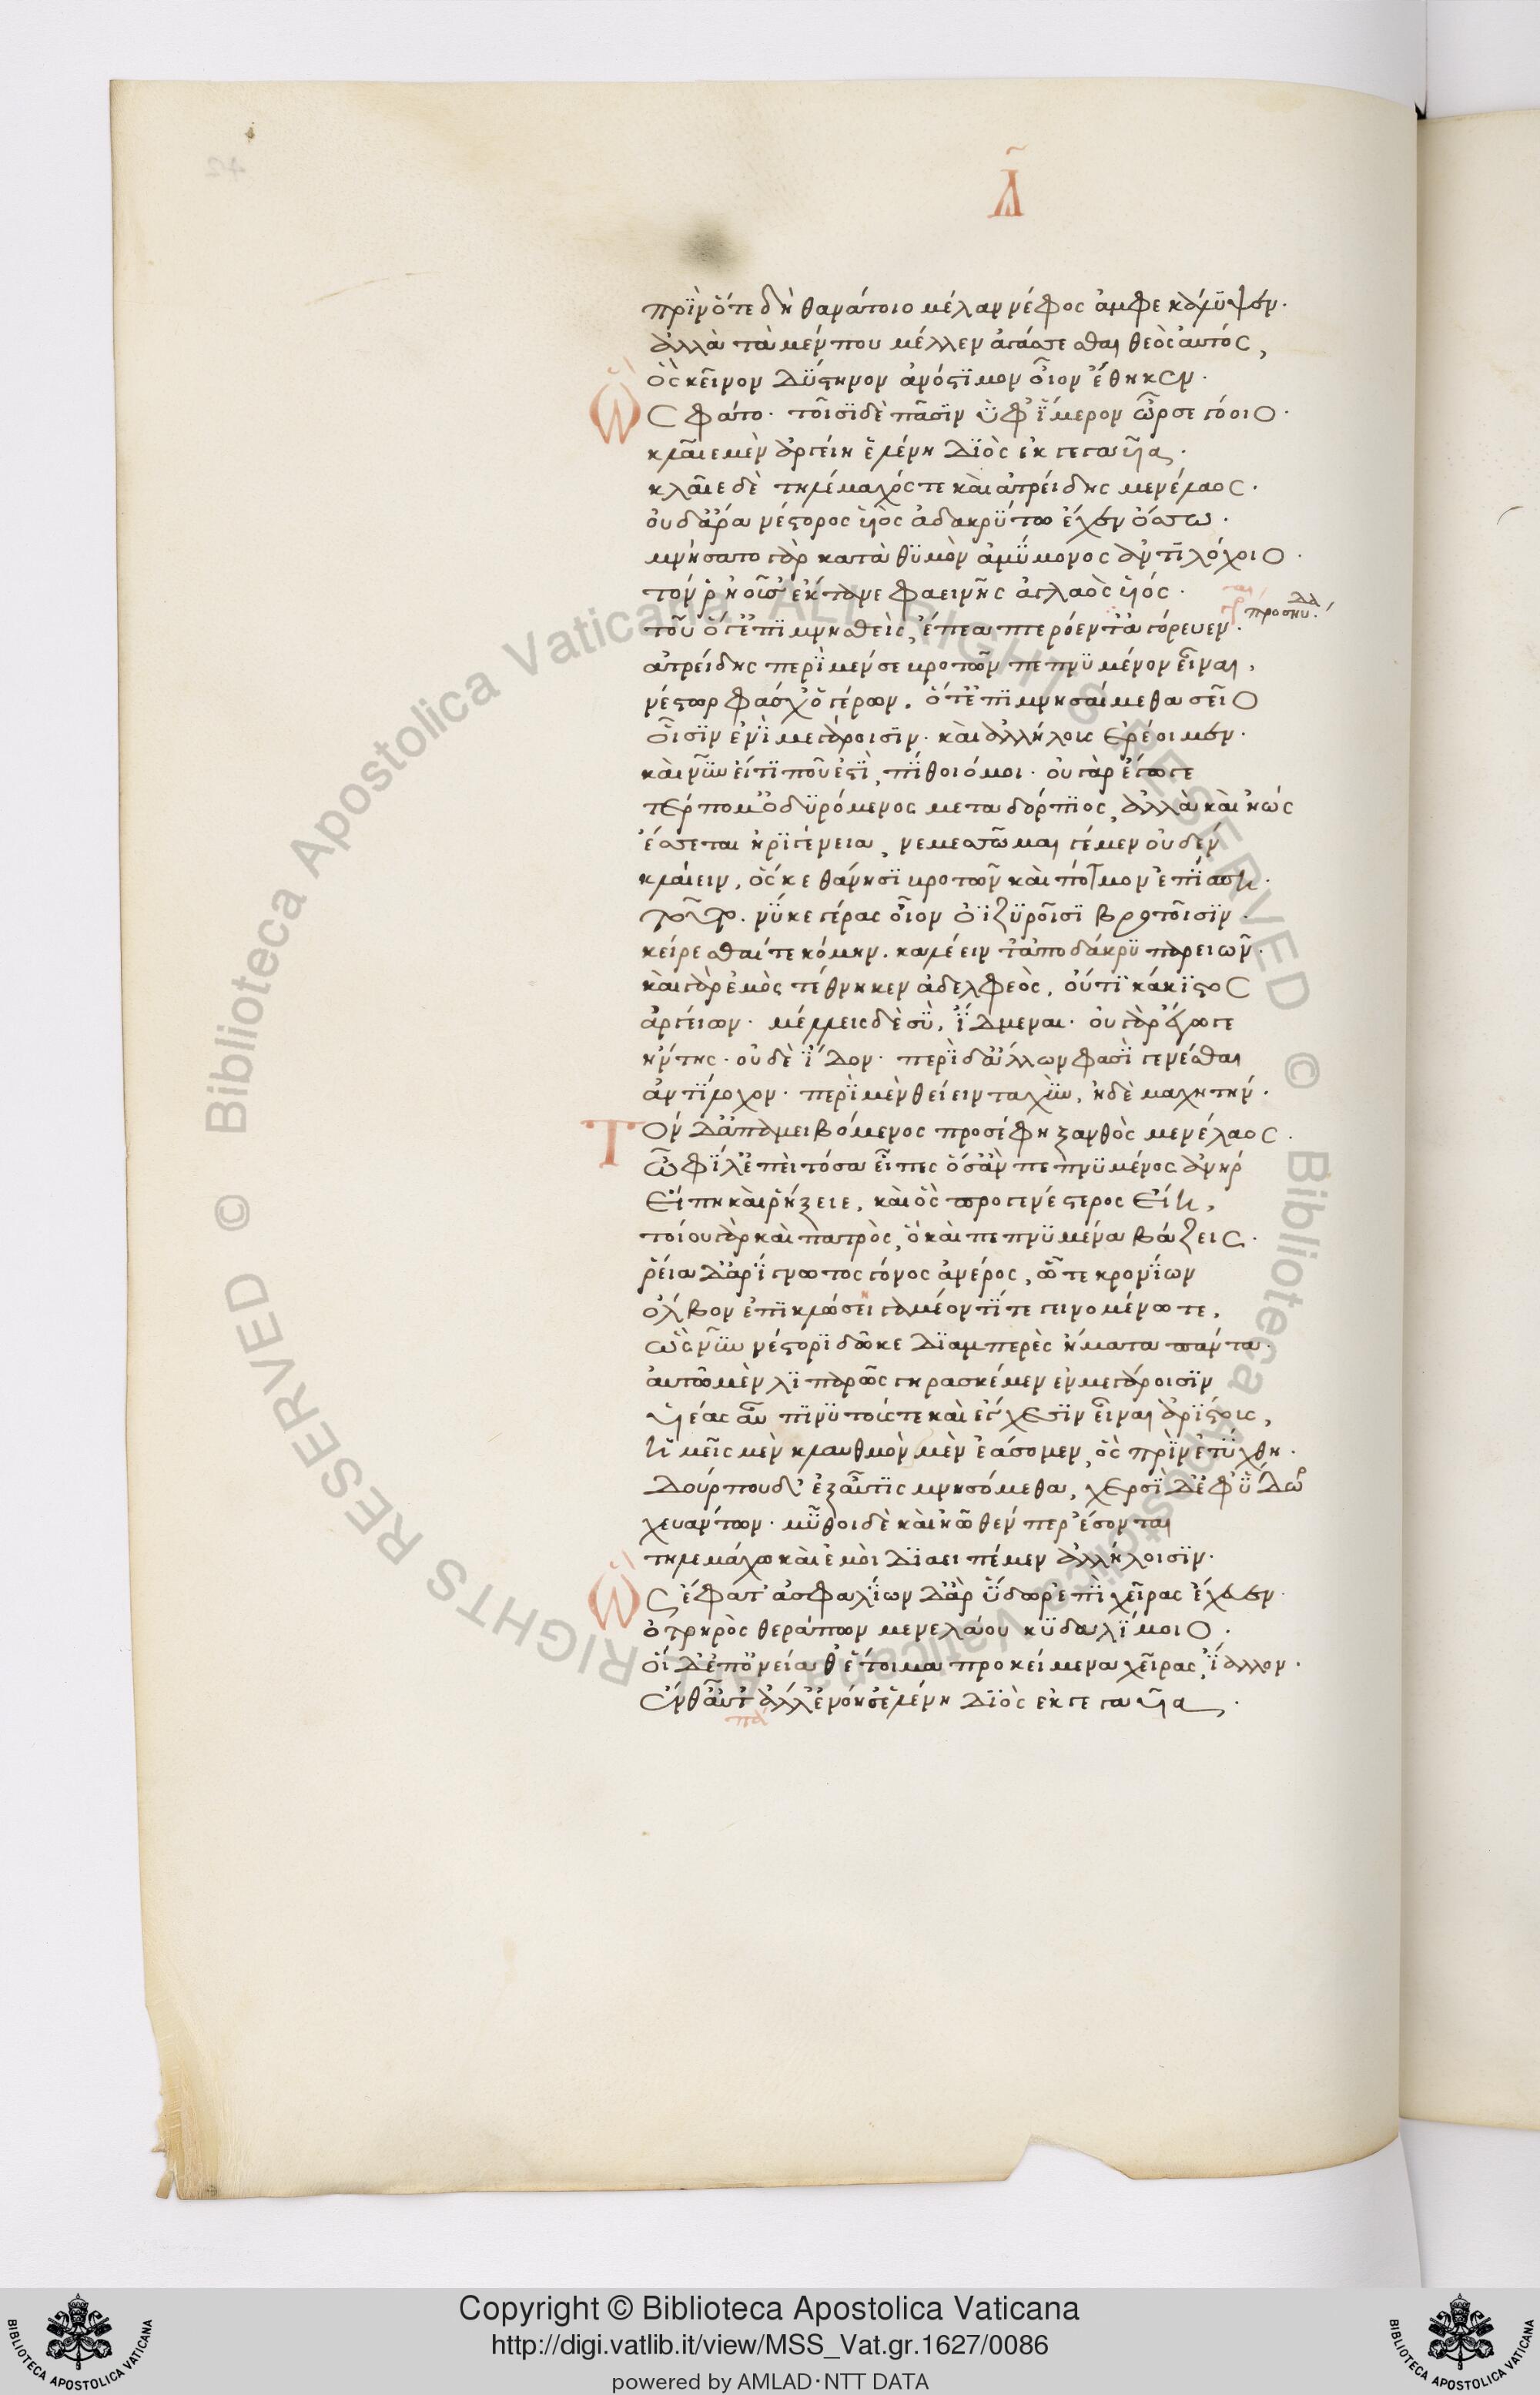 Δ
πρὶν ὅτε δὴ θανάτοιο μέλαν νέφος ἀμφεκάλυψεν.
ἀλλὰ τὰ μέν που μέλλεν ἀγάσσεσθαι θεὸς αὐτός,
ὃς κεῖνον δύστηνον ἀνόστιμον οἶον ἔθηκεν.
Ὣς φάτο. τοῖσι δὲ πᾶσιν ὑφ' ἵμερον ὦρσε γόοιο.
κλαῖε μὲν ἀργείη ἑλένη διὸς ἐκγεγαυῖα.
κλαῖε δὲ τηλέμαχός τε καὶ ἀτρείδης μενέλαος.
οὐδ' ἄρα νέστορος υἱὸς ἀδακρύτω ἔχεν ὄσσω.
μνήσατο γὰρ κατὰ θυμὸν ἀμύμονος ἀντιλόχοιο.
τόν ῥ' ἠοῦς ἔκτεινε φαεινῆς ἀγλαὸς υἱός.
τοῦ ὅγ' ἐπιμνησθεὶς, ἔπεα πτερόεντ' ἀγόρευεν.
προσηύδα
ἀτρείδης περὶ μέν σε βροτῶν πεπνυμένον εἶναι,
νέστωρ φάσχ' ὁ γέρων. ὅτ' ἐπιμνησαίμεθα σεῖο
οἷσιν ἐνὶ μεγάροισιν. καὶ ἀλλήλους ἐρέοιμεν.
καὶ νῦν εἴ τί που ἐστὶ, πίθοιό μοι. οὐ γὰρ ἔγωγε
τέρπομ' ὀδυρόμενος μεταδόρπιος, ἀλλὰ καὶ ἠώς
ἔσσεται ἠριγένεια, νεμεσσῶμαι γέ μεν οὐδέν
κλαίειν, ὅς κε θάνησι βροτῶν καὶ πότμον ἐπίσπη.
τοῦτό νύ κε γέρας οἶον ὀϊζυροῖσι βροτοῖσιν.
κείρεσθαί τε κόμην. βαλέειν τ' ἀπὸ δάκρυ παρειῶν.
καὶ γὰρ ἐμὸς τέθνηκεν ἀδελφεὸς, οὔτι κάκιστος
ἀργείων. μέλλεις δὲ σὺ, ἴδμεναι. οὐ γὰρ ἔγωγε
ἤντης. οὐδὲ ἴδον. περὶ δ' ἄλλων φασὶ γενέσθαι
ἀντίλοχον. περὶ μὲν θείειν ταχὺν, ἠδὲ μαχητήν.
Τὸν δ' ἀπαμειβόμενος προσέφη ξανθὸς μενέλαος.
ὦ φίλ' ἐπεὶ τόσα εἶπες ὅσ' ἂν πεπνυμένος ἀνήρ
εἴπη καὶ ῥήξειε, καὶ ὃς προγενέστερος εἴη,
τοίου γὰρ καὶ πατρὸς, ὃ καὶ πεπνυμένα βάζεις.
ῥεῖα δ' ἀρίγνωτος γόνος ἀνέρος, ᾧ τε κρονίων
ὄλβον ἐπικλώσει γαμέοντί τε γεινομένω τε,
ὡς νῦν νέστορι δῶκε διαμπερὲς ἤματα πάντα.
αὐτὸν μὲν λιπαρῶς γηρασκέμεν ἐν μεγάροισιν
υἱέας αὖ πινυτούς τε καὶ ἔγχεσιν εἶναι ἀρίστους,
ἡμεῖς μὲν κλαυθμὸν μὲν ἐάσομεν, ὃς πρὶν ἐτύχθη.
δόρπου δ' ἐξαῦτις μνησώμεθα, χερσὶ δ' ἐφ' ὕδωρ
χευάντων. μῦθοι δὲ καὶ ἠῶθέν περ ἔσονται
τηλεμάχω καὶ ἐμοὶ διαειπέμεν ἀλλήλοισιν.
Ὣς ἔφατ' ἀσφαλίων δ' ἄρ' ὕδωρ ἐπὶ χεῖρας ἔχευεν
ὀτρηρὸς θεράπων μενελάου κυδαλίμοιο.
οἱ δ' ἐπ' ὀνείαθ' ἑτοῖμα προκείμενα χεῖρας ἴαλλον.
ἔνθ' αὖτ' ἀλλ' ἐνόησ' ἑλένη διὸς ἐκγεγαυῖα.
Copyright © Biblioteca Apostolica Vaticana
http://digi.vatlib.it/view/MSS_Vat.gr.1627/0086
powered by AMLAD·NTT DATA